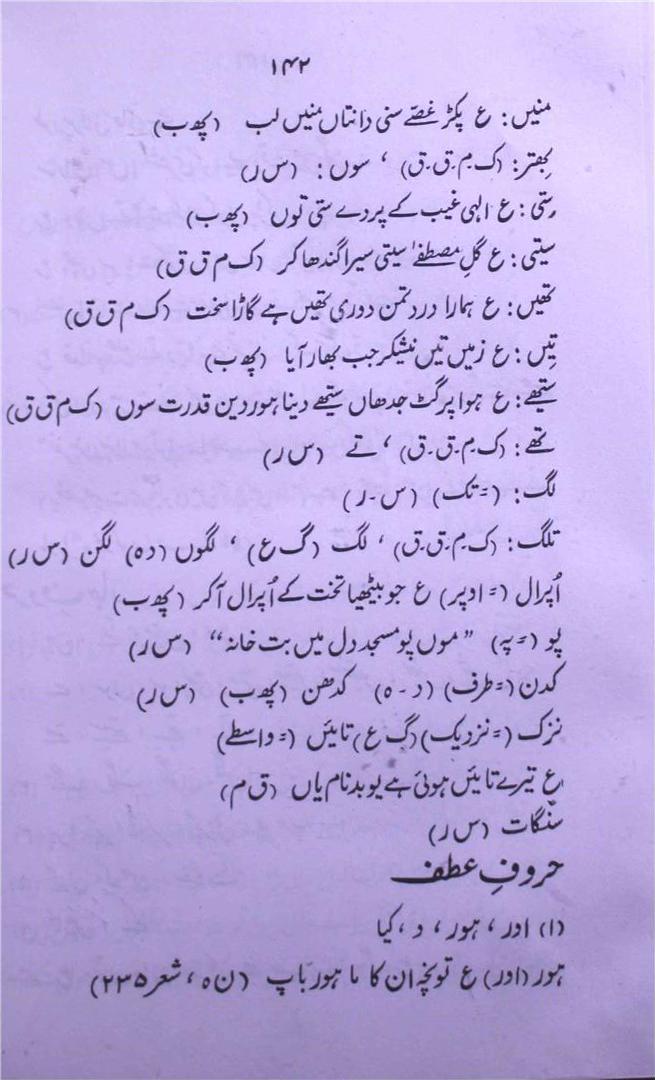 ۱۴۲
منیں: ع پکڑ غصّے سنی دانتاں منیں لب (پھ ب)
بھتر: (ک م۔ق۔ق) ، سوں: (س ر)
ستی: ع الہی غیب کے پردے ستی توں (پھ ب)
سیتی: ع گلِ مصطفےٰ سیتی سیرا گندھا کر (ک م ق ق)
تھیں: ع ہمارا درد تمن دوری تھیں ہے گاڑا سخت (ک م ق ق)
تِیں: ع زمیں تیں نیشکر جب بھار آیا (پھ ب)
ستھے: ع ہوا پرگٹ جدھاں ستھے دینا ہور دین قدرت سوں (ک م ق ق)
تھے: (ک م۔ق۔ق) ، تے (س ر)
لگ: (= تک) (س۔ر)
تلگ: (ک۔م۔ق۔ق) ، لگ (گ ع) ، لگوں (د ہ) لگن (س ر)
اُپرال (= اوپر) ع جو بیٹھیا تخت کے اُپرال آکر (پھ ب)
پو (= پہ) ”موں پو مسجد دل میں بت خانہ“ (س ر)
کدن (= طرف) (د۔ہ) کدھن (پھ ب) (س ر)
نزک (= نزدیک) (گ ع) تائیں (= واسطے)
ع تیرے تائیں ہوئی ہے یو بدنامیاں (ق م)
سنگات (س ر)
حروفِ عطف
(۱) اور ، ہور ، د ، کیا
ہور (اور) ع تونچہ ان کا ما ہور باپ (ن ہ ، شعر ۲۳۵)